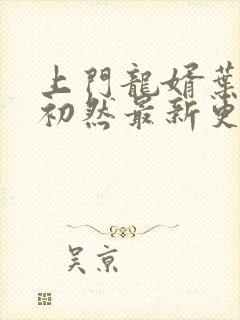 上門龍婿葉
初然最新更
吳京